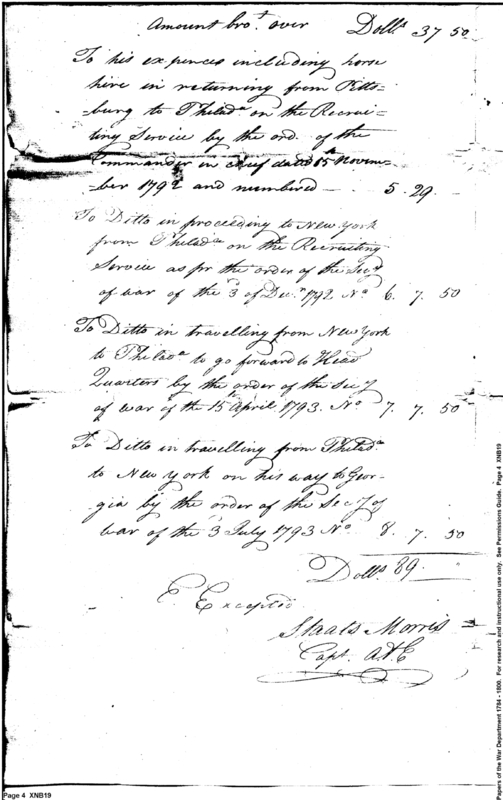 Amount bro.t over Doll.s 37 50
To his expences including horse
hire in returning from Pitts-
-burg to Philad.a on the Recrui-
ting Service by the ord. of the
Commander in chief dated 15.th Novem-
-ber 1792 and numbered — . 5 . 29 .
To Ditto in proceeding to New York
from Philad.a on the Recruiting
Service as pr the order of the Sec.y
of war of the 3 of Dec.r 1792 N.o 6. 7. 50
To Ditto in travelling from New York
to Philad.a to go forward to Head
Quarters by the order of the Sec.y
of war of the 15.th April 1793. N.o 7. 7. 50
To Ditto in travelling from Philad.a
to New York on his way to Geor-
gia by the order of the Sec.y of
war of the 3 July 1793 N.o 8. 7. 50
Doll.s 89.
E. Excepted
Staats Morris
Capt.
Page 4 XNB19
Papers of the War Department 1784 - 1800. For research and instructional use only. See Permissions Guide. Page 4 XNB19